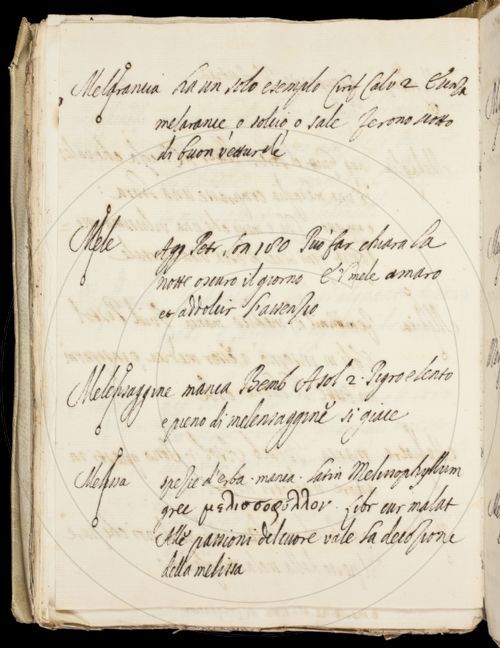 Melarancia ha un solo esempio Cirif Calv 2 E senza
melarancie o solcio o sale ferono scotto
di buon vetturale
Mele Agg Petr son 180 Può far chiara la
notte oscuro il giorno E 'l mele amaro
et addolcir l'assenzio
Melensaggine manca Bemb Asol 2 Pigro e lento
e pieno di melensaggine si giace
Melissa spezie d'erba manca latin Melissophyllum
grec μελισσοφυλλον libr cur malat
Alle passioni del cuore vale la decozione
della melissa